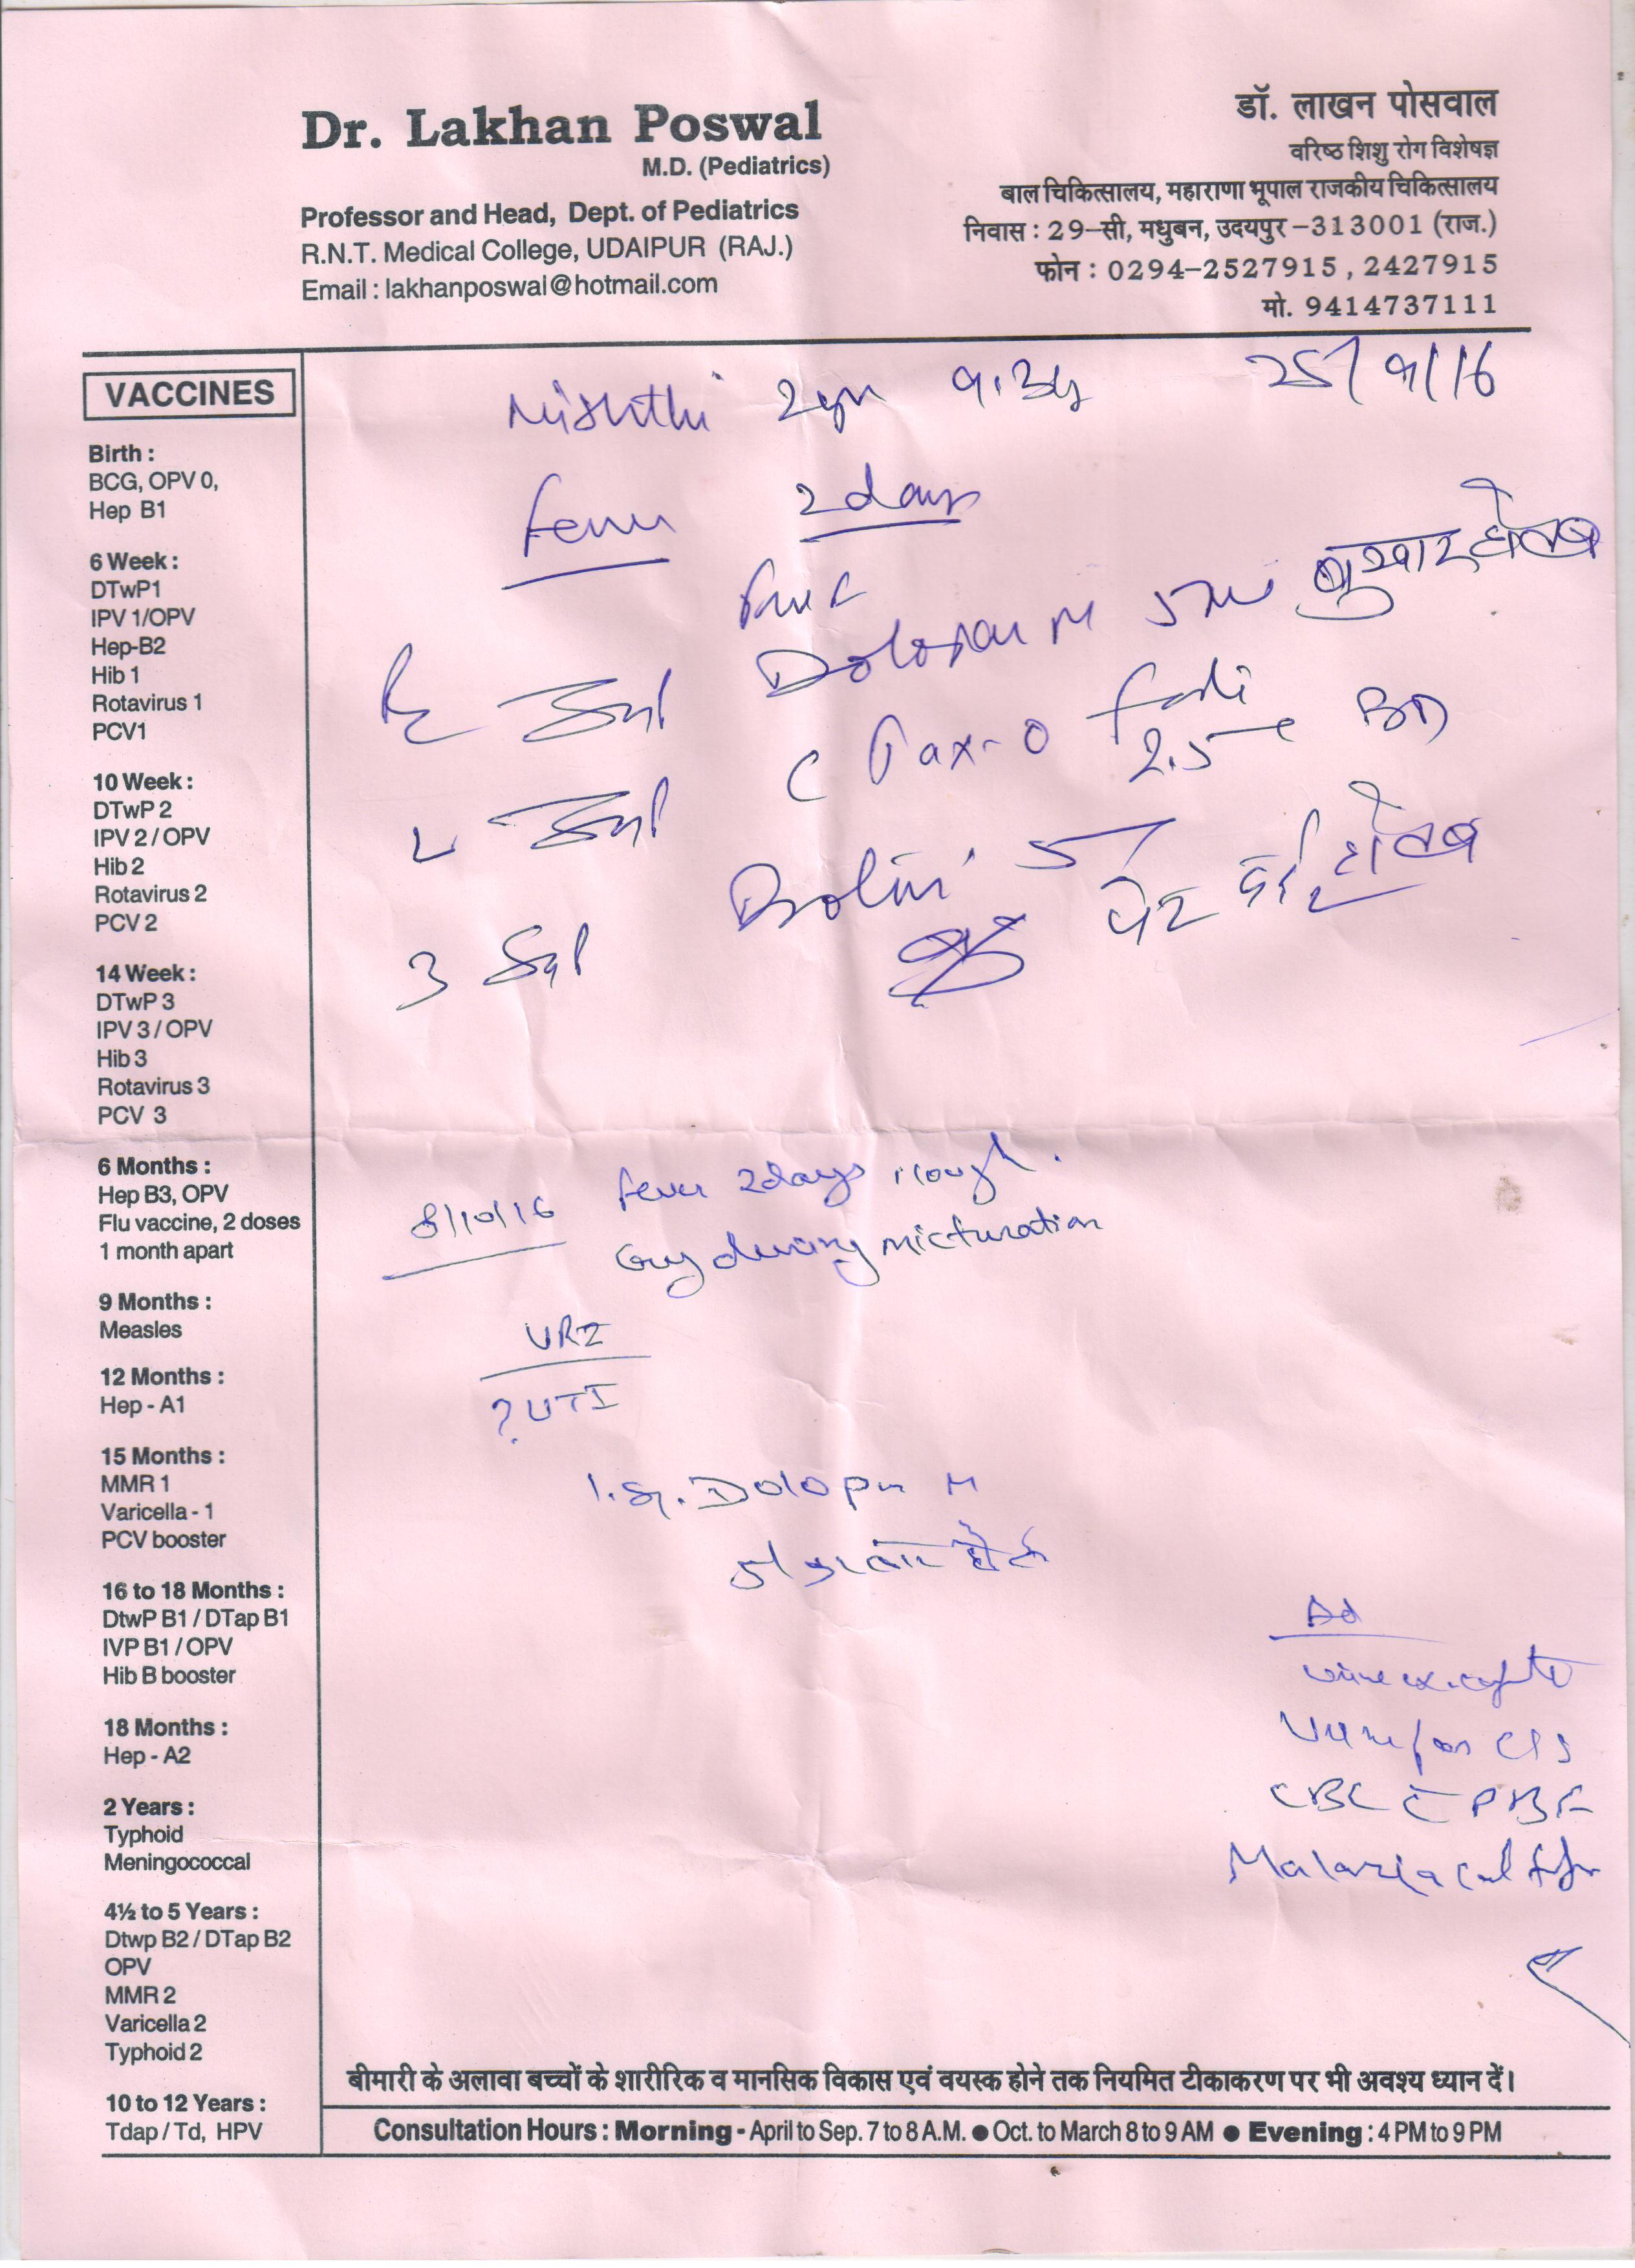 Dr. Lakhan Poswal
M.D. (Pediatrics)
Professor and Head, Dept. of Pediatrics
R.N.T. Medical College, UDAIPUR (RAJ.)
Email : lakhanposwal@hotmail.com
डॉ. लाखन पोसवाल
वरिष्ठ शिशु रोग विशेषज्ञ
बाल चिकित्सालय, महाराणा भूपाल राजकीय चिकित्सालय
निवास : 29-सी, मधुबन, उदयपुर-313001 (राज.)
फोन : 0294-2527915, 2427915
मो. 9414737111
VACCINES
Birth :
BCG, OPV 0,
Hep B1
6 Week :
DTwP1
IPV 1/OPV
Hep-B2
Hib 1
Rotavirus 1
PCV1
10 Week :
DTwP 2
IPV 2 / OPV
Hib 2
Rotavirus 2
PCV 2
14 Week :
DTwP 3
IPV 3 / OPV
Hib 3
Rotavirus 3
PCV 3
6 Months :
Hep B3, OPV
Flu vaccine, 2 doses
1 month apart
9 Months :
Measles
12 Months :
Hep - A1
15 Months :
MMR 1
Varicella - 1
PCV booster
16 to 18 Months :
DtwP B1 / DTap B1
IVP B1 / OPV
Hib B booster
18 Months :
Hep - A2
2 Years :
Typhoid
Meningococcal
4½ to 5 Years :
Dtwp B2 / DTap B2
OPV
MMR 2
Varicella 2
Typhoid 2
10 to 12 Years :
Tdap / Td, HPV
Mishthi 25/9/16
Fever 2 days
Dolopar M 5 ml बुखार हो तब
Tax-O forte 2.5 BD
3 5 पेट दर्द हो तब
8/10/16 fever 2days cough.
Cry during micturation
URI
? UTI
1. Sy. Dolopar M
Ad
Urine for C/S
CBC c̄ PBF
Malaria Card
बीमारी के अलावा बच्चों के शारीरिक व मानसिक विकास एवं वयस्क होने तक नियमित टीकाकरण पर भी अवश्य ध्यान दें।
Consultation Hours : Morning - April to Sep. 7 to 8 A.M. ● Oct. to March 8 to 9 AM ● Evening : 4 PM to 9 PM